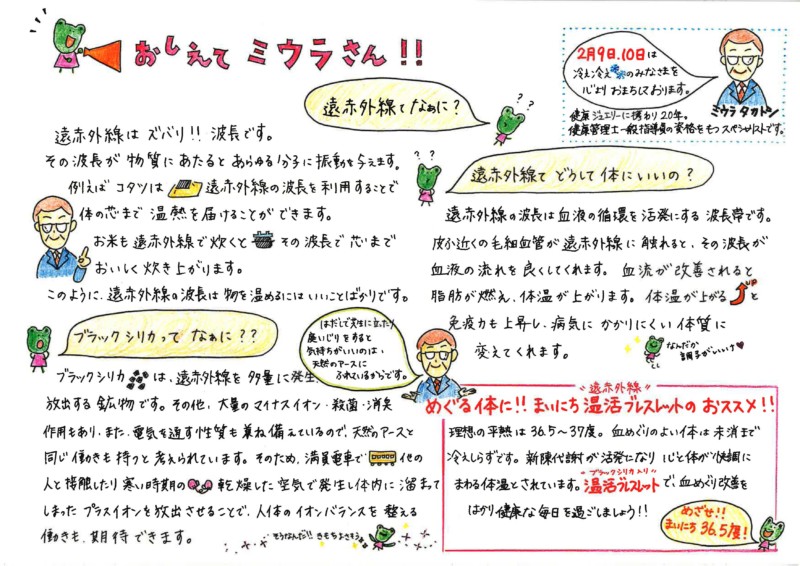 おしえて ミウラさん!!
2月9日、10日は
冷え冷えのみなさまを
心より おまちしております。
ミウラ タカトシ
健康ジュエリーに携わり20年。
健康管理士一般指導員の資格をもつスペシャリストです。
遠赤外線てなぁに?
遠赤外線は ズバリ!! 波長です。
その波長が 物質に あたると あらゆる分子に 振動を与えます。
例えば コタツは 遠赤外線の波長を利用することで
体の芯まで 温熱 を届けることが できます。
お米も遠赤外線で炊くと その 波長で 芯まで
おいしく 炊き上がります。
このように、遠赤外線の波長は 物を温めるには いいことばかりです。
遠赤外線て どうして 体にいいの?
遠赤外線の波長は血液の循環を活発にする 波長帯です。
皮ふ近くの毛細血管が 遠赤外線に 触れると、その波長が
血液の流れを 良くしてくれます。 血流が改善されると
脂肪が燃え、体温が上がります。 体温が上がる UP と
免疫力も上昇し、病気に かかりにくい 体質に
変えてくれます。
なんだか
調子がいいいい♥
ブラックシリカって なぁに??
はだしで芝生に立ったり
庭いじりをすると
気持ちがいいのは、
天然のアースに
ふれているからです。
ブラックシリカ は、遠赤外線を 多量に 発生、
放出する 鉱物です。その他、大量のマイナスイオン・殺菌・消臭
作用もあり、また、電気を通す性質も兼ね備えているので、天然のアースと
同じ働きも 持つと 考えられています。そのため、満員電車で 他の
人と接触したり 寒い時期の 乾燥した空気で発生し体内に 溜まって
しまった プラスイオンを放出させることで、人体の イオンバランスを 整える
働きも、期待できます。
そうなんだ!! きもちよさそう
"遠赤外線"
めぐる体に!! まいにち 温活ブレスレットの おススメ!!
理想の平熱は 36.5〜37度。 血めぐりのよい体は 末消まで
冷えしらずです。 新陳代謝が活発になり 心と体が快調に
まわる体温とされています。
"ブラックシリカ入り"
温活ブレスレットで 血めぐり改善を
はかり 健康な毎日を 過ごしましょう!!
めざせ!!
まいにち 36.5度!